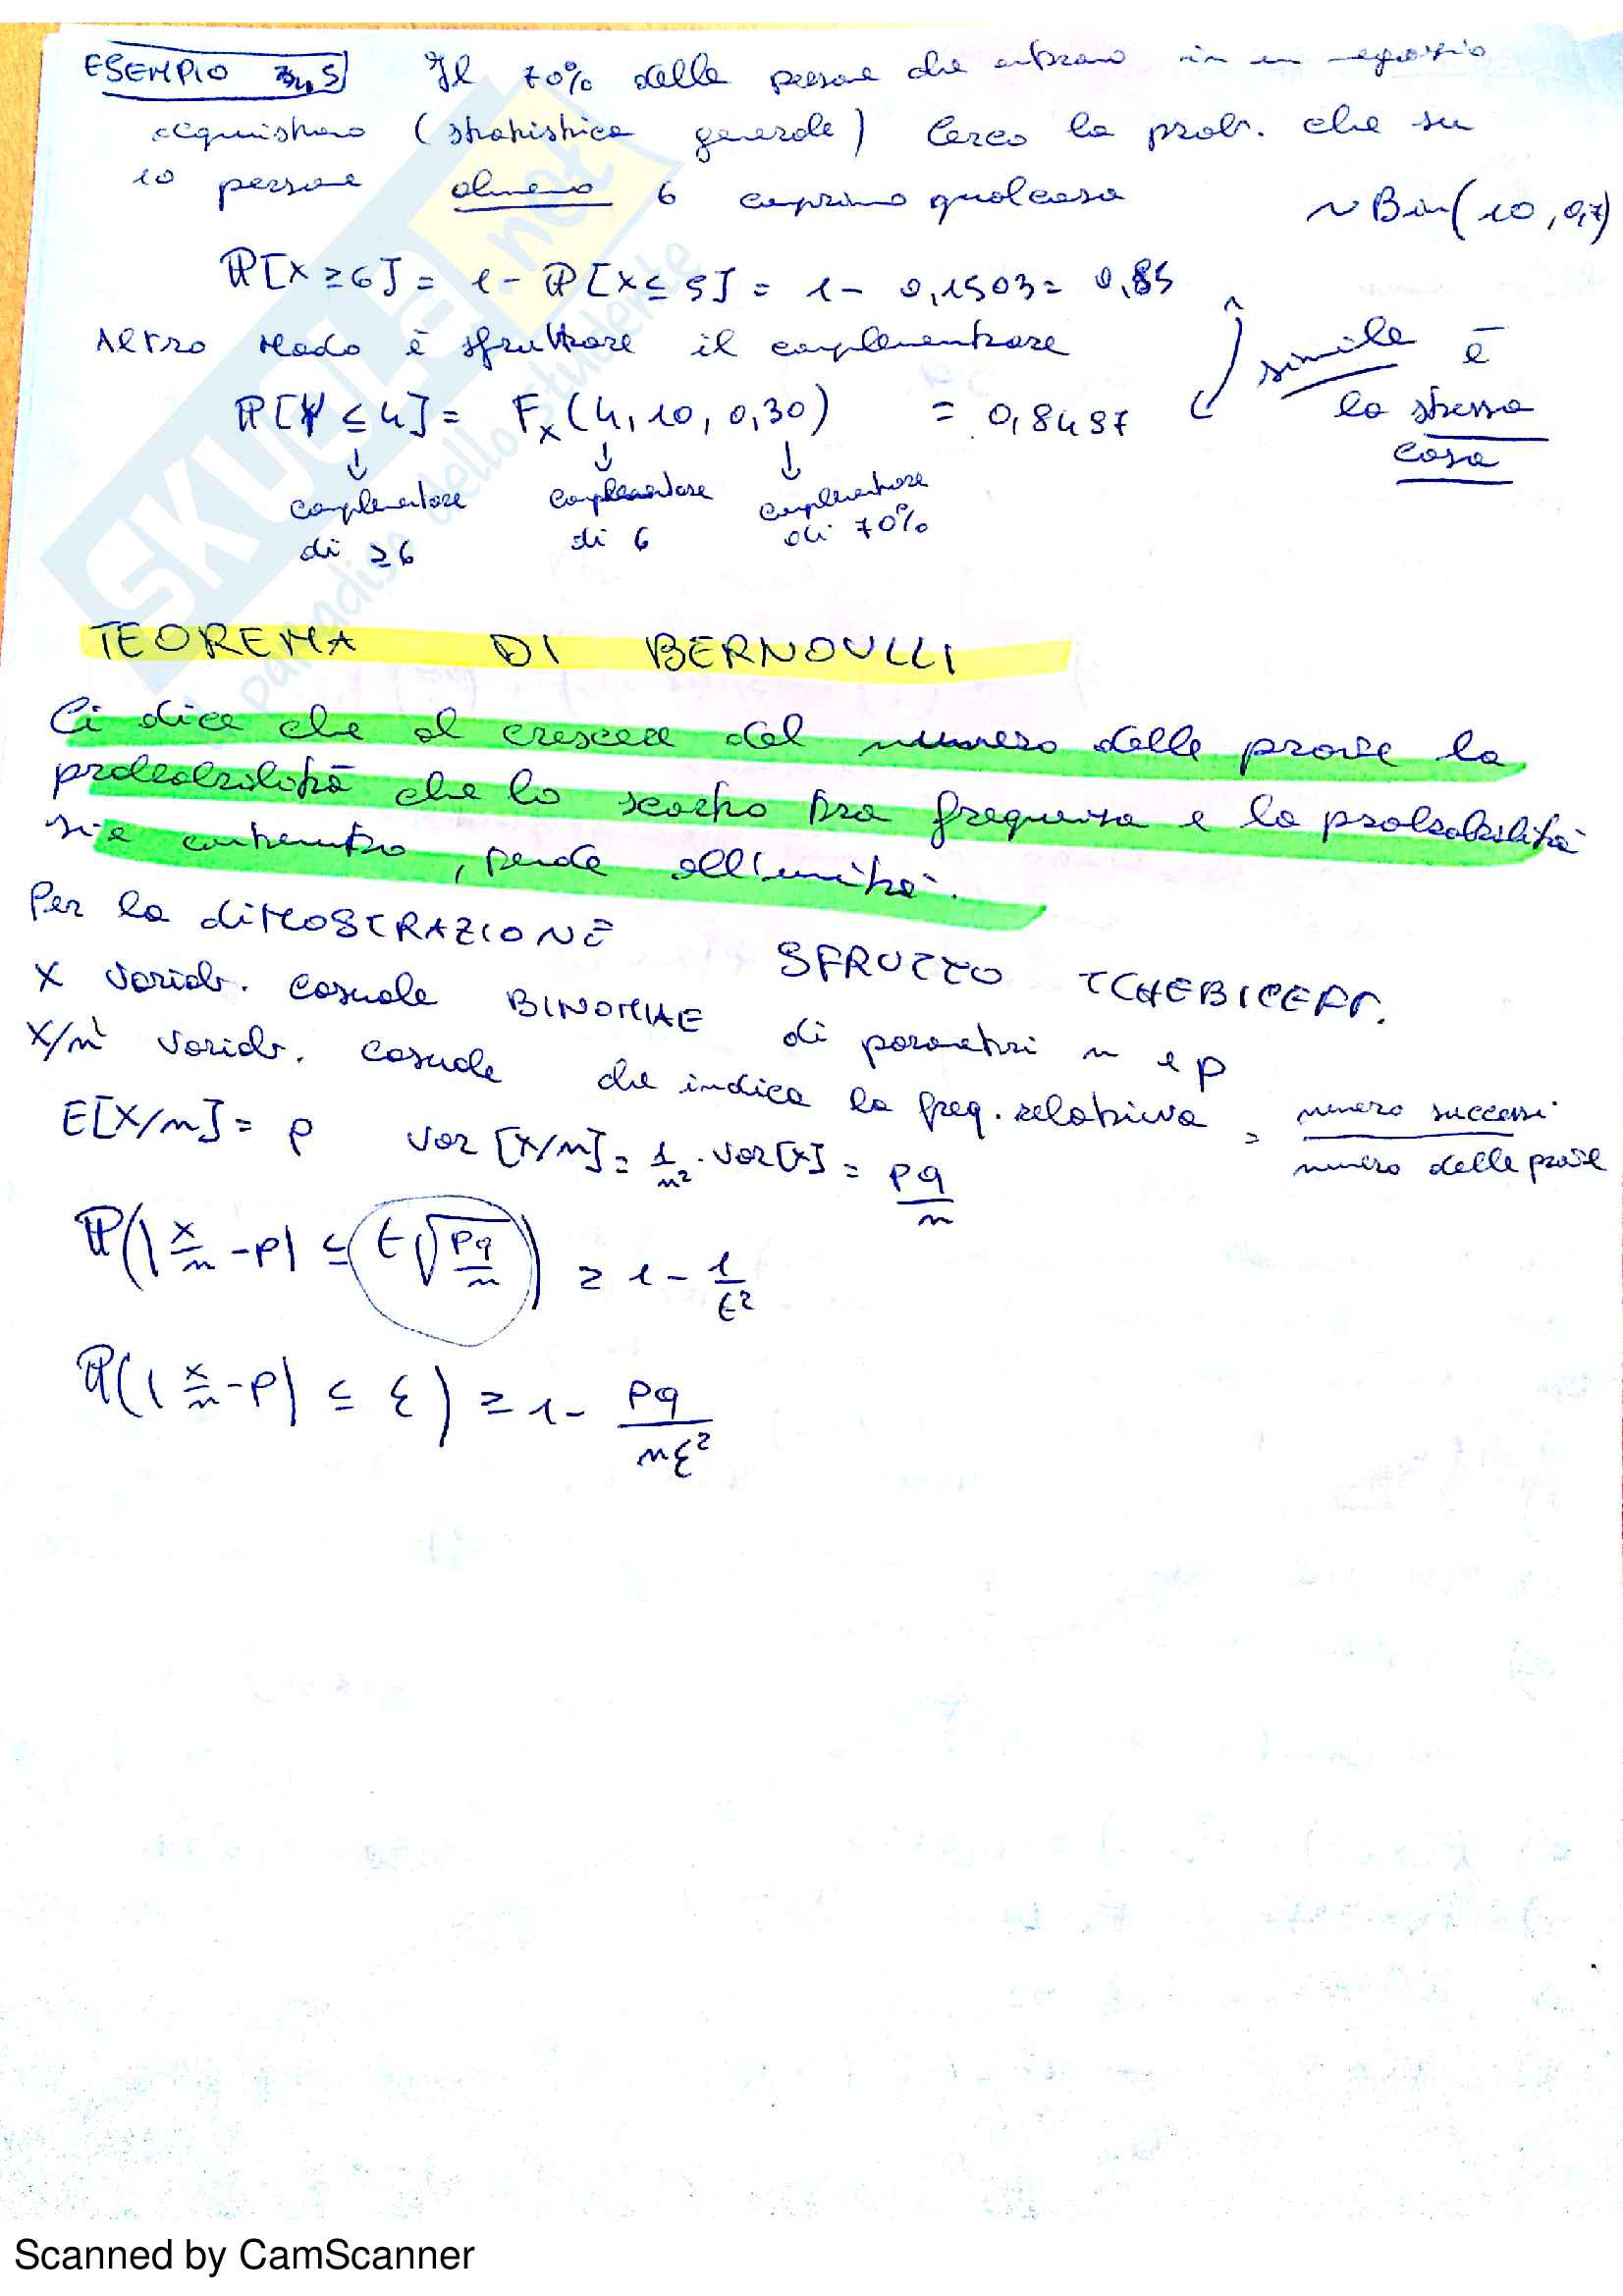 ESEMPIO 5 Il 70% delle persone che entrano in un negozio
acquistano (statistica generale) Cerco la prob. che su
10 persone almeno 6 comprino qualcosa ~ Bin(10, 0,7)
P[X ≥ 6] = 1 - P[X ≤ 5] = 1 - 0,1503 = 0,85
Altro modo è sfruttare il complementare
simile è
la stessa
cosa
P[Y ≤ 4] = Fx(4, 10, 0,30) = 0,8497
complementare complementare complementare
di ≥6 di 6 di 70%
TEOREMA DI BERNOULLI
Ci dice che al crescere del numero delle prove la
probabilità che lo scarto tra frequenza e la probabilità
sia contenuto, tende all'unità.
Per la diMOSTRAZIONE SFRUTTO TCHEBICEFF.
X variab. casuale BINOMIAE di parametri n e p
X/n è variab. casuale che indica la freq. relativa = numero successi / numero delle prove
E[X/n] = p var[X/n] = 1/n² · var[X] = pq/n
P(|X/n - p| ≤ t√(pq/n)) ≥ 1 - 1/t²
P(|X/n - p| ≤ ε) ≥ 1 - pq/nε²
SKUOLA.net
il paradiso dello studente
Scanned by CamScanner